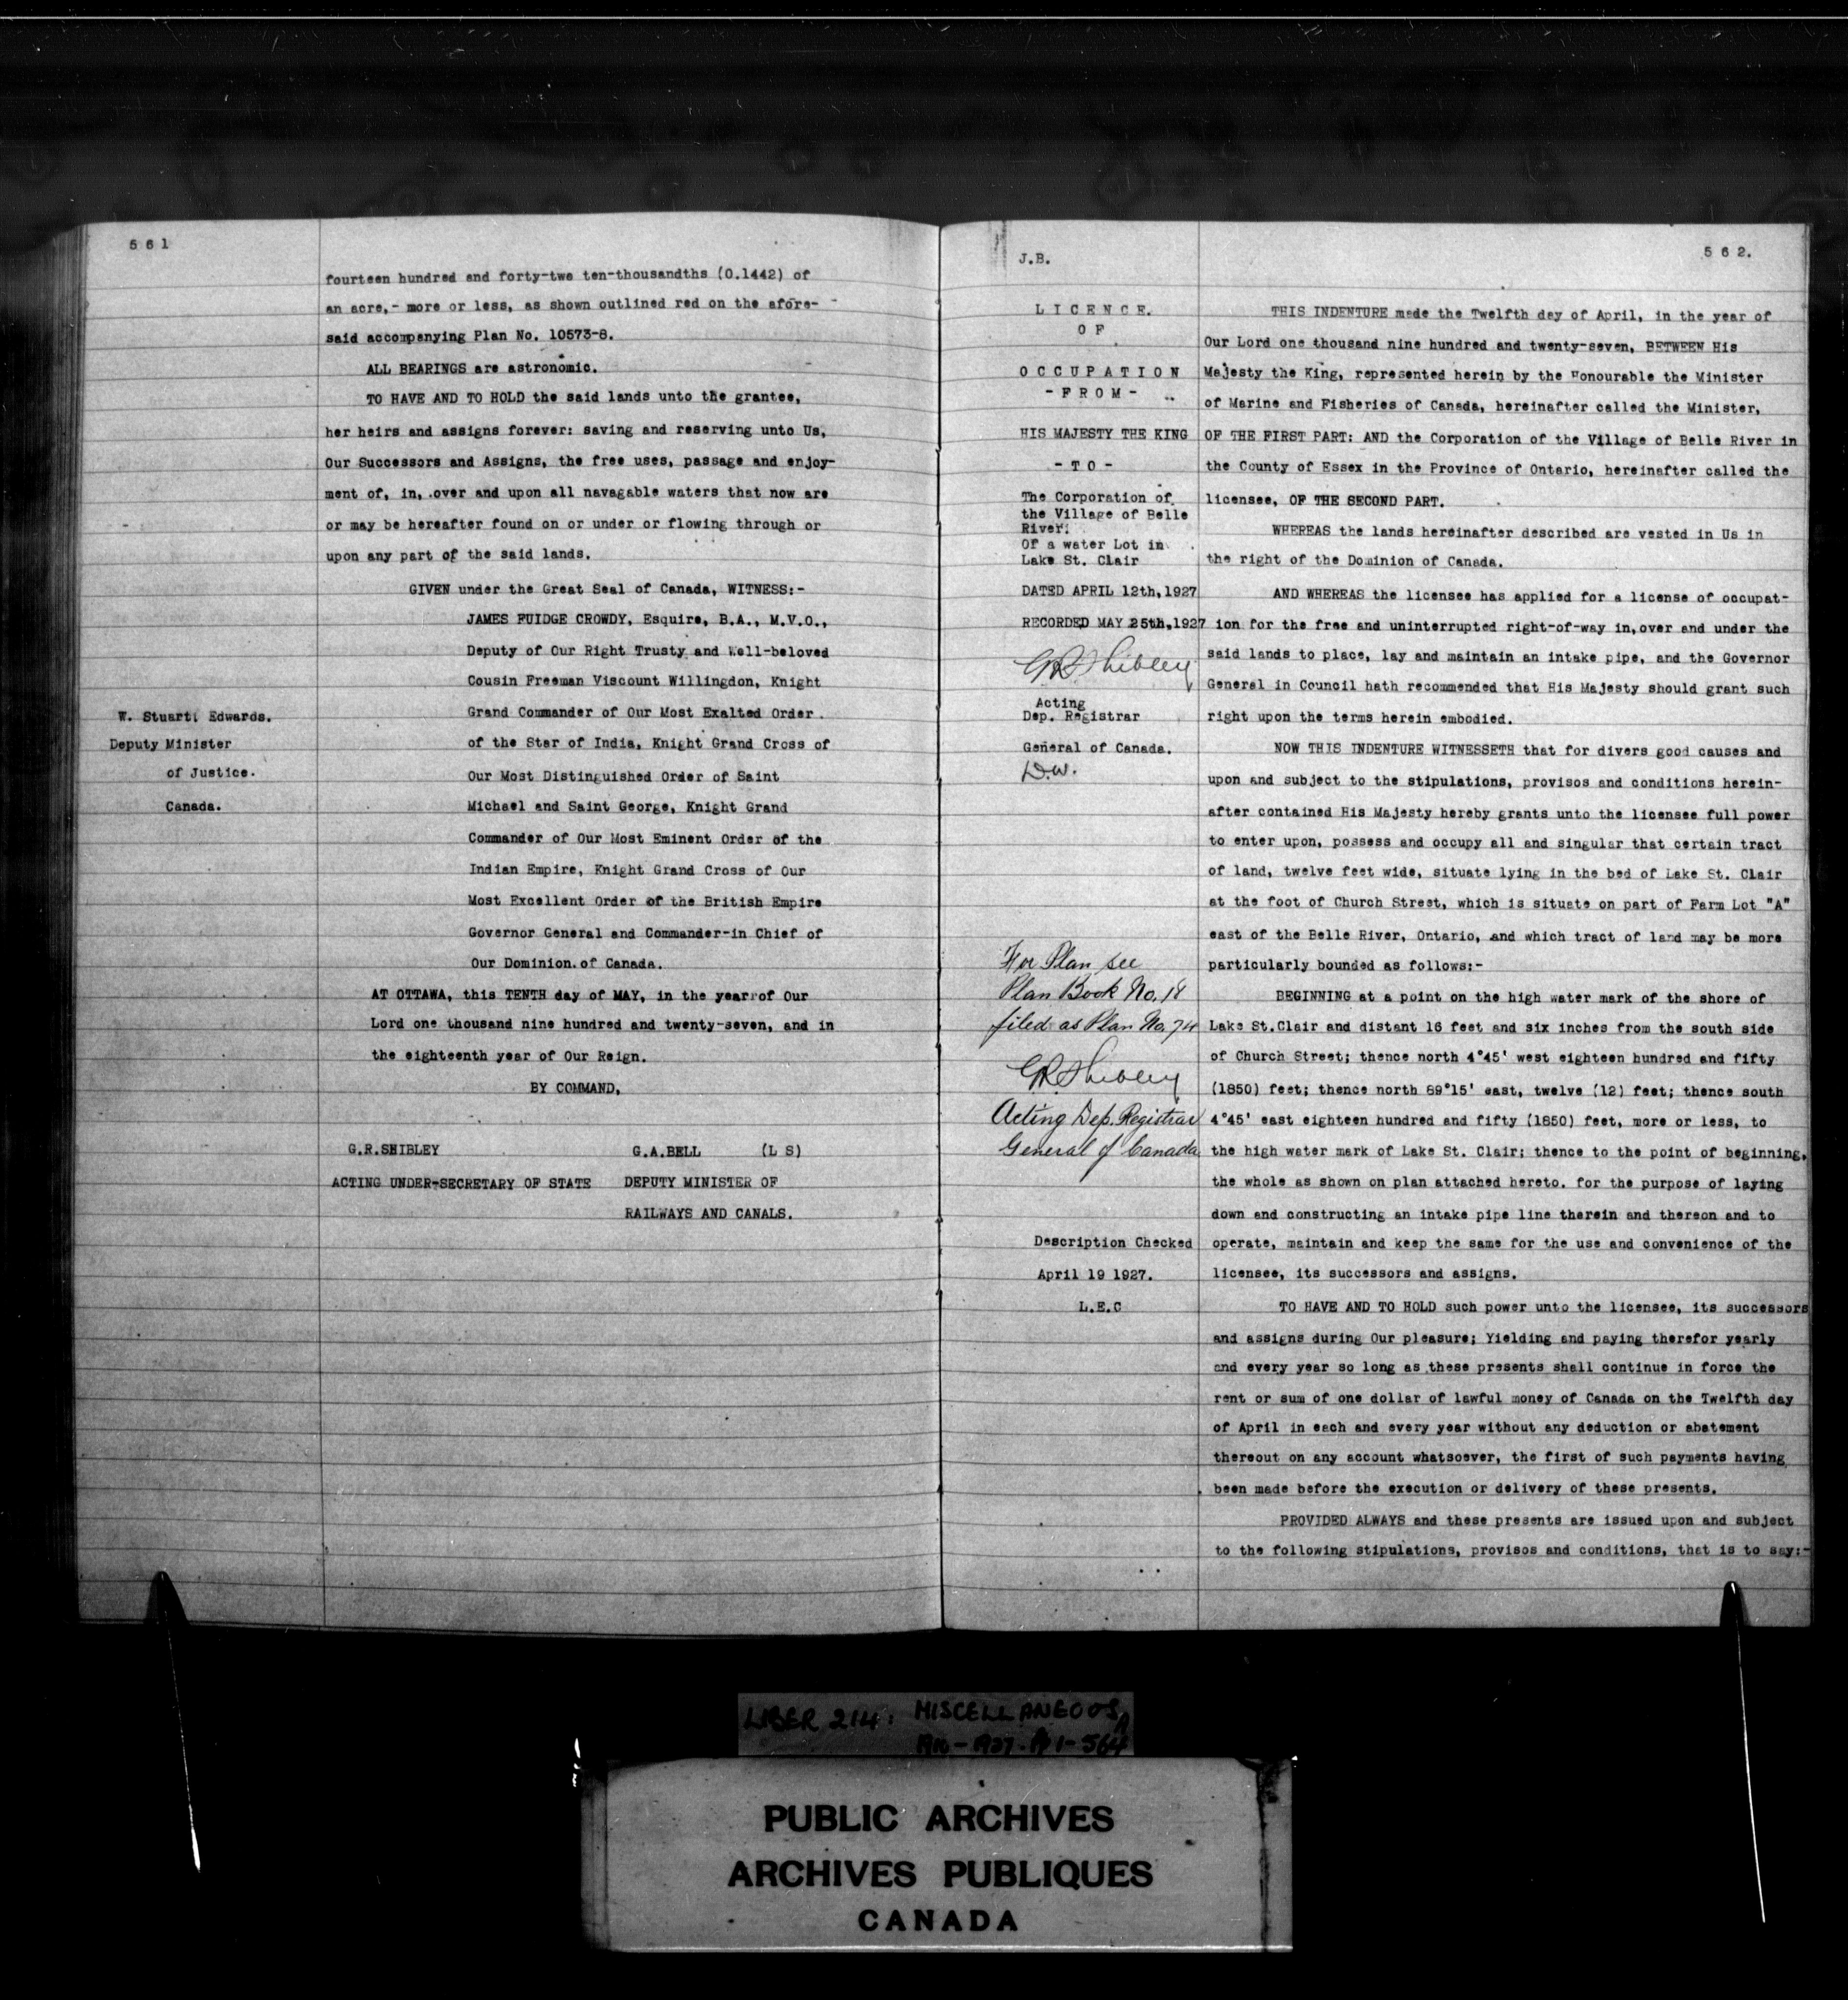 561
fourteen hundred and forty-two ten-thousandths (0.1442) of
an acre,- more or less, as shown outlined red on the afore-
said accompanying Plan No. 10573-8.
ALL BEARINGS are astronomic.
TO HAVE AND TO HOLD the said lands unto the grantee,
her heirs and assigns forever: saving and reserving unto Us,
Our Successors and Assigns, the free uses, passage and enjoy-
ment of, in, over and upon all navagable waters that now are
or may be hereafter found on or under or flowing through or
upon any part of the said lands.
GIVEN under the Great Seal of Canada, WITNESS:-
JAMES FUIDGE CROWDY, Esquire, B.A., M.V.O.,
Deputy of Our Right Trusty and Well-beloved
Cousin Freeman Viscount Willingdon, Knight
Grand Commander of Our Most Exalted Order
of the Star of India, Knight Grand Cross of
Our Most Distinguished Order of Saint
Michael and Saint George, Knight Grand
Commander of Our Most Eminent Order of the
Indian Empire, Knight Grand Cross of Our
Most Excellent Order of the British Empire
Governor General and Commander-in Chief of
Our Dominion of Canada.
W. Stuart Edwards.
Deputy Minister
of Justice.
Canada.
AT OTTAWA, this TENTH day of MAY, in the year of Our
Lord one thousand nine hundred and twenty-seven, and in
the eighteenth year of Our Reign.
BY COMMAND,
G.R.SHIBLEY G.A.BELL (L S)
ACTING UNDER-SECRETARY OF STATE DEPUTY MINISTER OF
RAILWAYS AND CANALS.
J.B.
562.
LICENCE.
OF
OCCUPATION
-FROM-
HIS MAJESTY THE KING
-TO-
The Corporation of
the Village of Belle
River.
Of a water Lot in
Lake St. Clair
DATED APRIL 12th,1927
RECORDED MAY 25th,1927
GRShibley
Acting
Dep. Registrar
General of Canada.
D.W.
For Plan see
Plan Book No. 18
filed as Plan No. 74
GRShibley
Acting Dep. Registrar
General of Canada
Description Checked
April 19 1927.
L.E.C
THIS INDENTURE made the Twelfth day of April, in the year of
Our Lord one thousand nine hundred and twenty-seven, BETWEEN His
Majesty the King, represented herein by the Honourable the Minister
of Marine and Fisheries of Canada, hereinafter called the Minister,
OF THE FIRST PART: AND the Corporation of the Village of Belle River in
the County of Essex in the Province of Ontario, hereinafter called the
licensee, OF THE SECOND PART.
WHEREAS the lands hereinafter described are vested in Us in
the right of the Dominion of Canada.
AND WHEREAS the licensee has applied for a license of occupat-
ion for the free and uninterrupted right-of-way in, over and under the
said lands to place, lay and maintain an intake pipe, and the Governor
General in Council hath recommended that His Majesty should grant such
right upon the terms herein embodied.
NOW THIS INDENTURE WITNESSETH that for divers good causes and
upon and subject to the stipulations, provisos and conditions herein-
after contained His Majesty hereby grants unto the licensee full power
to enter upon, possess and occupy all and singular that certain tract
of land, twelve feet wide, situate lying in the bed of Lake St. Clair
at the foot of Church Street, which is situate on part of Farm Lot "A"
east of the Belle River, Ontario, and which tract of land may be more
particularly bounded as follows:-
BEGINNING at a point on the high water mark of the shore of
Lake St.Clair and distant 16 feet and six inches from the south side
of Church Street; thence north 4°45' west eighteen hundred and fifty
(1850) feet; thence north 89°15' east, twelve (12) feet; thence south
4°45' east eighteen hundred and fifty (1850) feet, more or less, to
the high water mark of Lake St. Clair; thence to the point of beginning,
the whole as shown on plan attached hereto. for the purpose of laying
down and constructing an intake pipe line therein and thereon and to
operate, maintain and keep the same for the use and convenience of the
licensee, its successors and assigns.
TO HAVE AND TO HOLD such power unto the licensee, its successors
and assigns during Our pleasure; Yielding and paying therefor yearly
and every year so long as these presents shall continue in force the
rent or sum of one dollar of lawful money of Canada on the Twelfth day
of April in each and every year without any deduction or abatement
thereout on any account whatsoever, the first of such payments having
been made before the execution or delivery of these presents.
PROVIDED ALWAYS and these presents are issued upon and subject
to the following stipulations, provisos and conditions, that is to say:-
LIBER 214: MISCELLANEOUS,
1910-1927. 1-564
PUBLIC ARCHIVES
ARCHIVES PUBLIQUES
CANADA